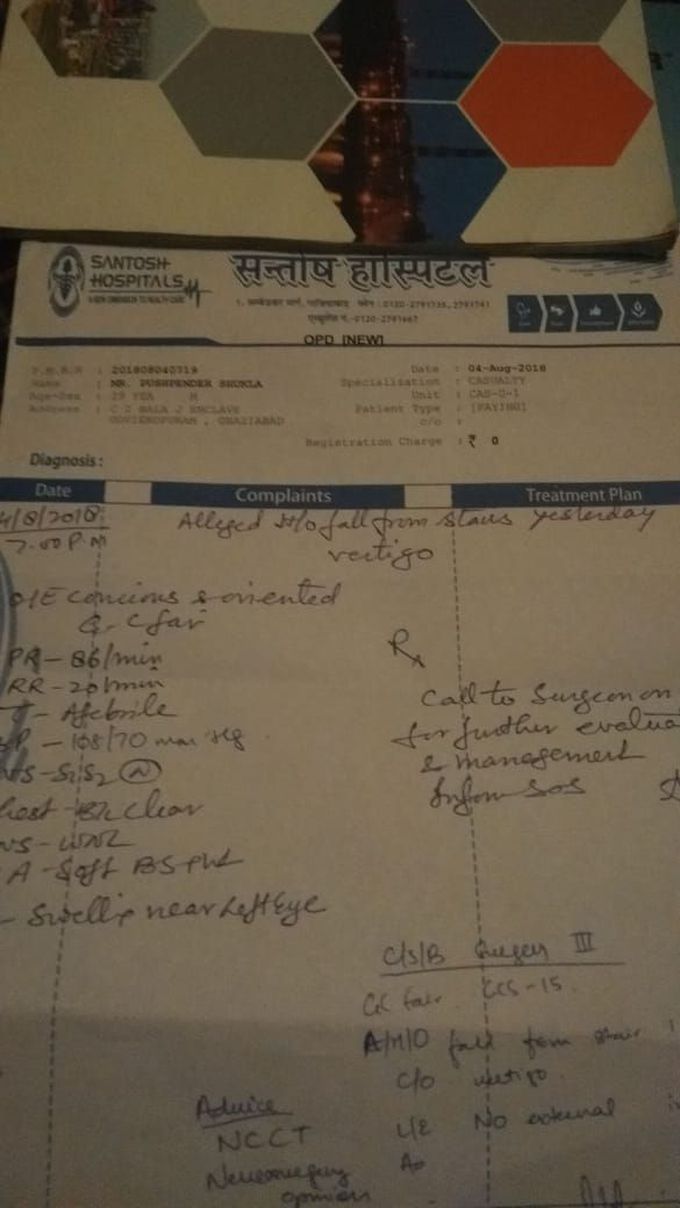 SANTOSH
HOSPITALS
A NEW DIMENSION TO HEALTH CARE
सन्तोष हॉस्पिटल
OPD [NEW]
201808040719
Name : MR. PUSHPENDER SHUKLA
Age-Sex : 29 YEA M
Address :
GHAZIABAD
Date : 04-Aug-2018
Specialization : CASUALTY
Unit : CAS-U-1
Patient Type : [PAYING]
C/O :
Registration Charge : ₹ 0
Diagnosis :
Date Complaints Treatment Plan
4/8/2018 Alleged H/o fall from stairs yesterday
7.00 P.M vertigo
O/E Concious & oriented
G.C fair
PR - 86/min
RR - 20/min
T - Afebrile
BP - 108/70
S1S2 N
Chest - B/L Clear
WNL
A - Soft BS
- near Left Eye
Rx
Call to Surgeon on
for further
& management
Inform SOS
C/S/B III
GC fair GCS-15.
A/H/O fall from stair
C/O vertigo
L/E No external
Advice
NCCT
Neurosurgery
opinion